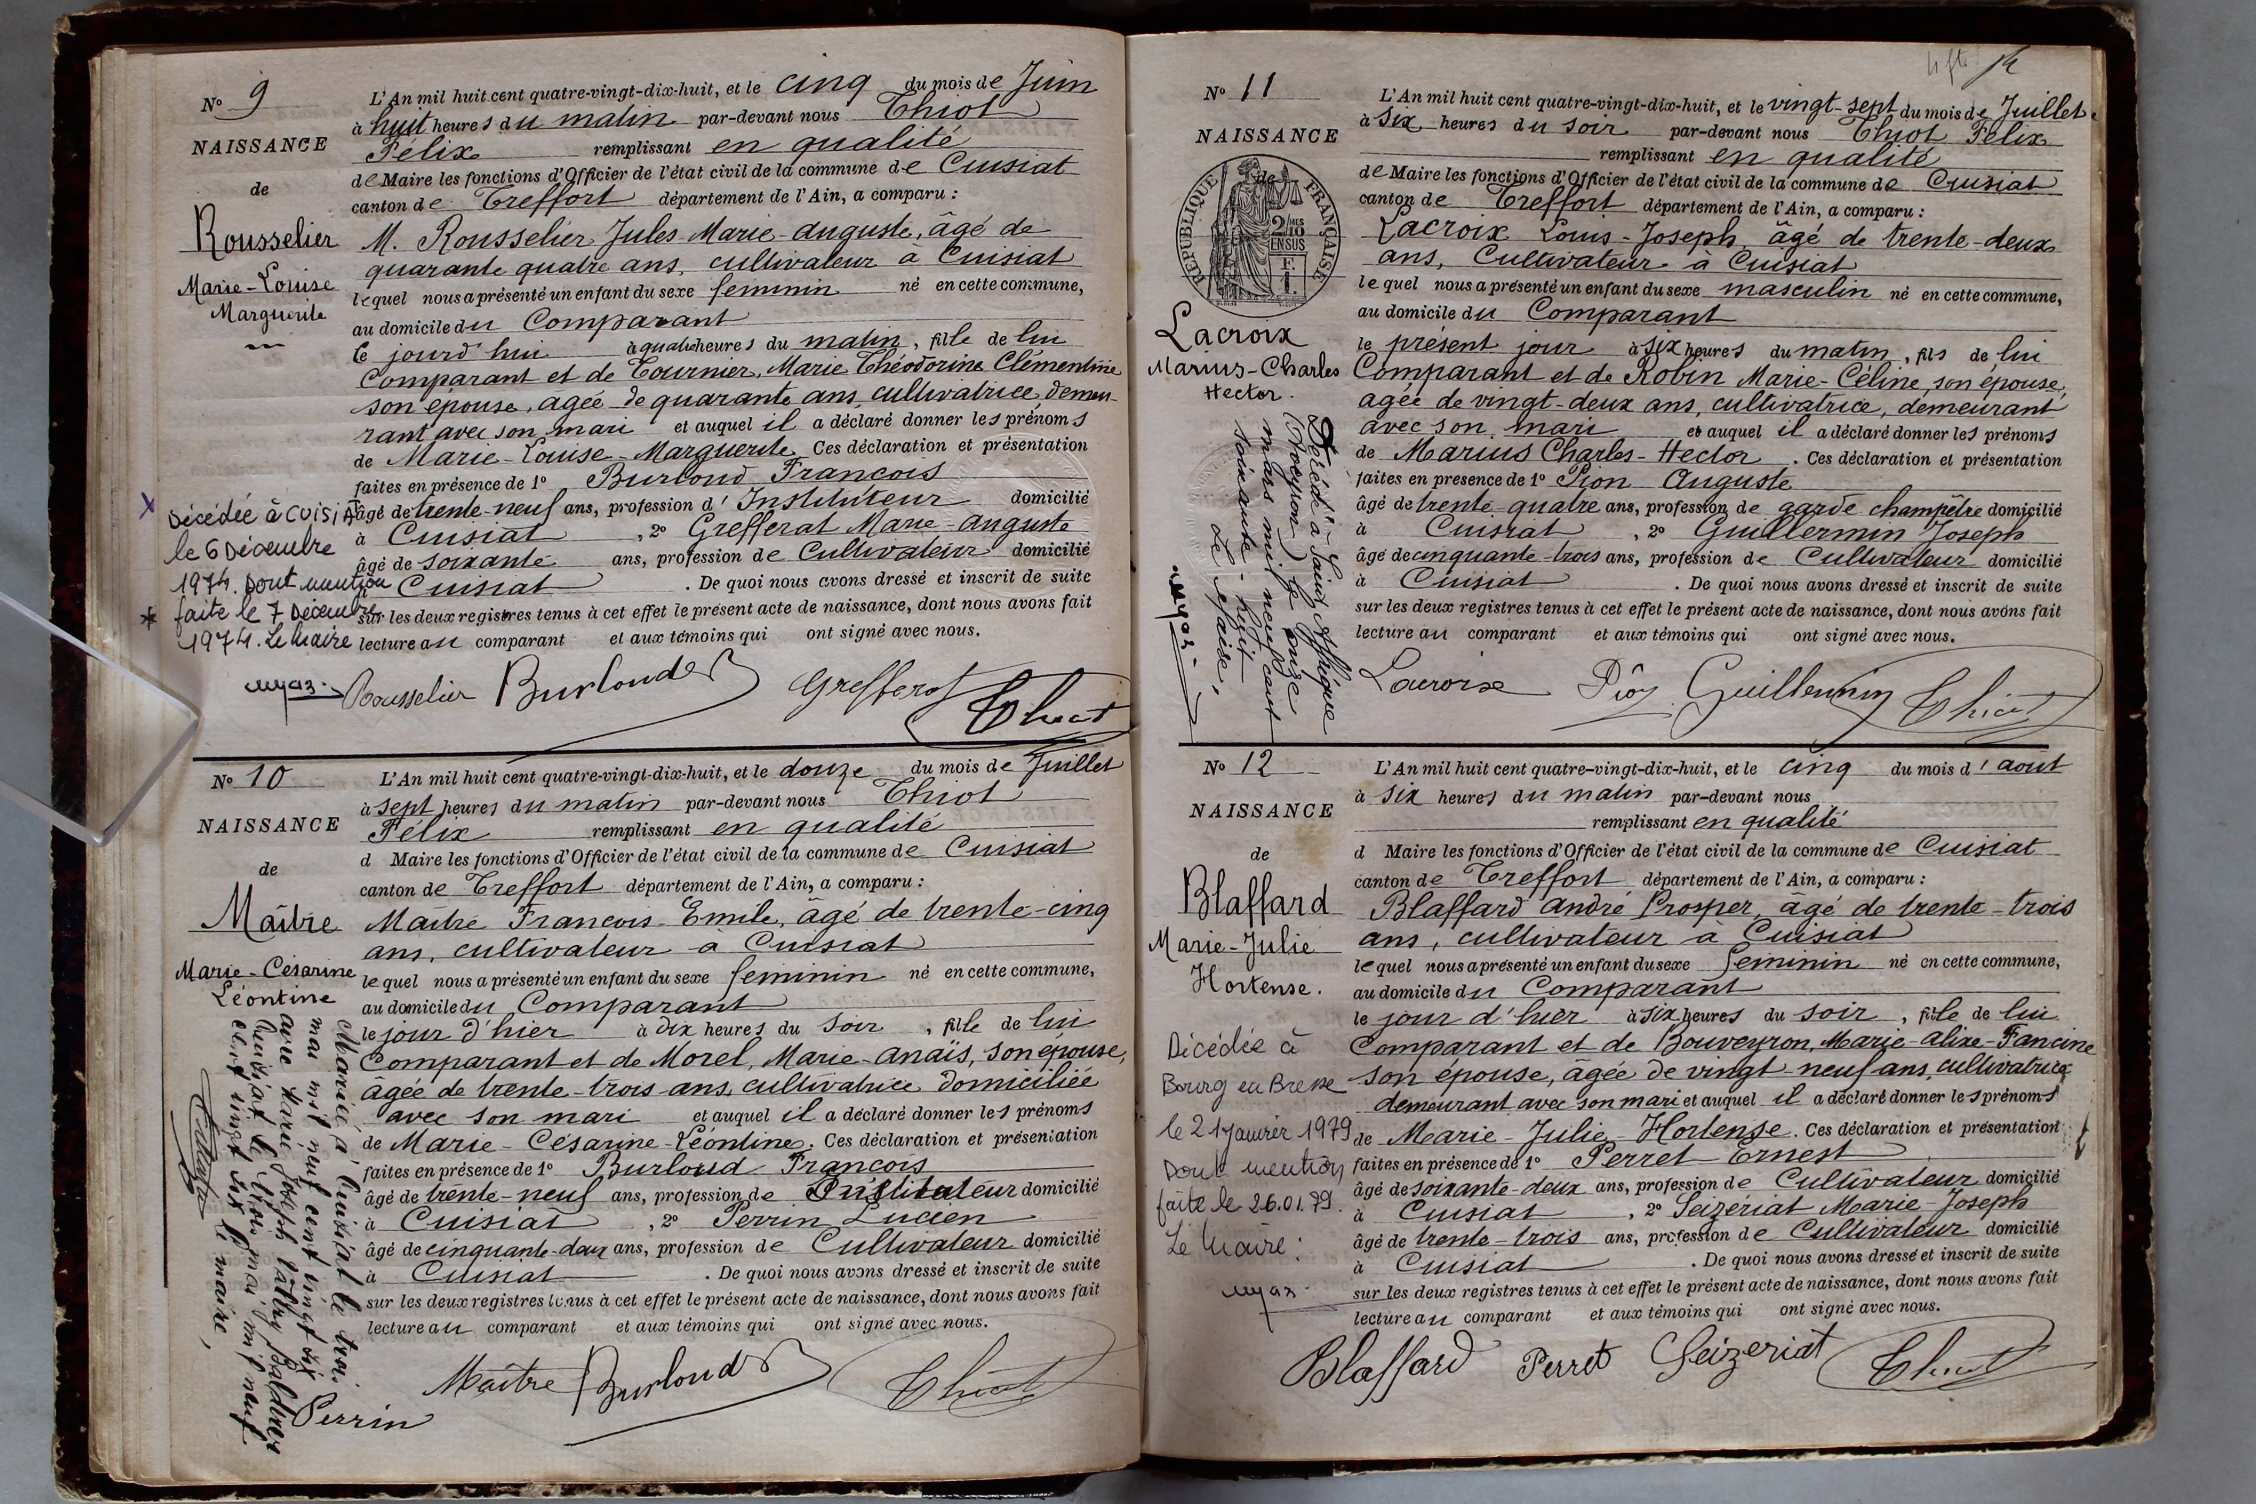 N° 9
NAISSANCE
de
Rousselier
Marie-Louise
Marguerite
L'An mil huit cent quatre-vingt-dix-huit, et le cinq du mois de Juin
à huit heures du matin par-devant nous Thiot
Félix remplissant en qualité
de Maire les fonctions d'Officier de l'état civil de la commune de Cuisiat
canton de Treffort département de l'Ain, a comparu :
M. Rousselier Jules-Marie-auguste, âgé de
quarante quatre ans, cultivateur à Cuisiat
lequel nous a présenté un enfant du sexe feminin né en cette commune,
au domicile du Comparant
le jourd'hui à quatre heures du matin, fille de lui
Comparant et de Tournier, Marie Théodorine Clémentine
son épouse, agée de quarante ans, cultivatrice, demeu-
rant avec son mari et auquel il a déclaré donner les prénoms
de Marie-Louise-Marguerite Ces déclaration et présentation
faites en présence de 1° Burloud François
âgé de trente-neuf ans, profession d'Instituteur domicilié
à Cuisiat, 2° Grefferat Marie-auguste
âgé de soixante ans, profession de Cultivateur domicilié
à Cuisiat. De quoi nous avons dressé et inscrit de suite
sur les deux registres tenus à cet effet le présent acte de naissance, dont nous avons fait
lecture au comparant et aux témoins qui ont signé avec nous.
Décédée à CUISIAT
le 6 Décembre
1974. Dont mention
faite le 7 Décembre
1974. Le Maire
Rousselier Burloud Grefferat Thiot
N° 10
NAISSANCE
de
Maître
Marie-Césarine
Léontine
L'An mil huit cent quatre-vingt-dix-huit, et le douze du mois de Juillet
à sept heures du matin par-devant nous Thiot
Félix remplissant en qualité
d Maire les fonctions d'Officier de l'état civil de la commune de Cuisiat
canton de Treffort département de l'Ain, a comparu :
Maître François-Emile, âgé de trente-cinq
ans, cultivateur à Cuisiat
lequel nous a présenté un enfant du sexe feminin né en cette commune,
au domicile du Comparant
le jour d'hier à dix heures du soir, fille de lui
Comparant et de Morel, Marie-anaïs, son épouse,
âgée de trente-trois ans, cultivatrice domiciliée
avec son mari et auquel il a déclaré donner les prénoms
de Marie-Césarine-Léontine. Ces déclaration et présentation
faites en présence de 1° Burloud François
âgé de trente-neuf ans, profession de Instituteur domicilié
à Cuisiat, 2° Perrin Lucien
âgé de cinquante-deux ans, profession de Cultivateur domicilié
à Cuisiat. De quoi nous avons dressé et inscrit de suite
sur les deux registres tenus à cet effet le présent acte de naissance, dont nous avons fait
lecture au comparant et aux témoins qui ont signé avec nous.
Mariée à Cuisiat le trois
mai mil neuf cent vingt six
avec Marie Joseph
Cuisiat le trois mai mil neuf
cent vingt six le maire,
Maître Burloud Thiot
Perrin
N° 11
NAISSANCE
de
RÉPUBLIQUE FRANÇAISE
2/10MES
EN SUS
Lacroix
Marius-Charles
Hector.
L'An mil huit cent quatre-vingt-dix-huit, et le vingt-sept du mois de Juillet
à six heures du soir par-devant nous Thiot Félix
remplissant en qualité
de Maire les fonctions d'Officier de l'état civil de la commune de Cuisiat
canton de Treffort département de l'Ain, a comparu :
Lacroix Louis-Joseph, âgé de trente-deux
ans, Cultivateur à Cuisiat
lequel nous a présenté un enfant du sexe masculin né en cette commune,
au domicile du Comparant
le présent jour à six heures du matin, fils de lui
Comparant et de Robin Marie-Céline, son épouse,
agée de vingt-deux ans, cultivatrice, demeurant
avec son mari et auquel il a déclaré donner les prénoms
de Marius Charles-Hector. Ces déclaration et présentation
faites en présence de 1° Pion Auguste
âgé de trente-quatre ans, profession de garde champêtre domicilié
à Cuisiat, 2° Guillermin Joseph
âgé de cinquante-trois ans, profession de Cultivateur domicilié
à Cuisiat. De quoi nous avons dressé et inscrit de suite
sur les deux registres tenus à cet effet le présent acte de naissance, dont nous avons fait
lecture au comparant et aux témoins qui ont signé avec nous.
Décédé à Saint
(Aveyron) le onze
mars mil neuf cent
soixante-huit
Le Maire,
Lacroix Pion Guillermin Thiot
N° 12
NAISSANCE
de
Blaffard
Marie-Julie
Hortense.
L'An mil huit cent quatre-vingt-dix-huit, et le cinq du mois d'aout
à six heures du matin par-devant nous
remplissant en qualité
d Maire les fonctions d'Officier de l'état civil de la commune de Cuisiat
canton de Treffort département de l'Ain, a comparu :
Blaffard andré Prosper, âgé de trente-trois
ans, cultivateur à Cuisiat
lequel nous a présenté un enfant du sexe feminin né en cette commune,
au domicile du Comparant
le jour d'hier à six heures du soir, fille de lui
Comparant et de Bouveyron, Marie-alixe-Fancine
son épouse, âgée de vingt-neuf ans, cultivatrice
demeurant avec son mari et auquel il a déclaré donner les prénoms
de Marie-Julie Hortense. Ces déclaration et présentation
faites en présence de 1° Perret Ernest
âgé de soixante-deux ans, profession de Cultivateur domicilié
à Cuisiat, 2° Seizériat Marie-Joseph
âgé de trente-trois ans, profession de Cultivateur domicilié
à Cuisiat. De quoi nous avons dressé et inscrit de suite
sur les deux registres tenus à cet effet le présent acte de naissance, dont nous avons fait
lecture au comparant et aux témoins qui ont signé avec nous.
Décédée à
Bourg en Bresse
le 21 Janvier 1979
Dont mention
faite le 26.01.79.
Le Maire :
Blaffard Perret Seizeriat Thiot